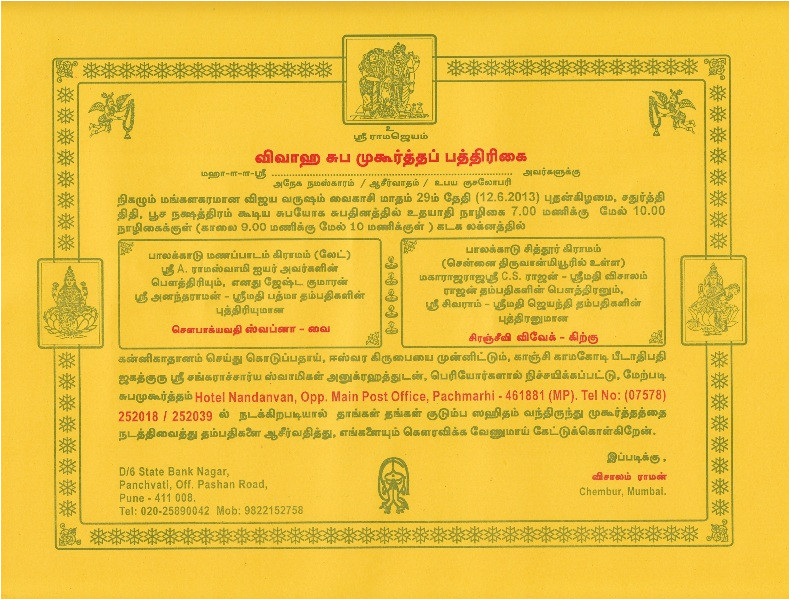 உ
ஸ்ரீ ராமஜெயம்
விவாஹ சுப முகூர்த்தப் பத்திரிகை
மஹா-ள-ள-ஸ்ரீ ........................................ அவர்களுக்கு
அநேக நமஸ்காரம் / ஆசீர்வாதம் / உபய குசலோபரி
நிகழும் மங்களகரமான விஜய வருஷம் வைகாசி மாதம் 29ம் தேதி (12.6.2013) புதன்கிழமை, சதுர்த்தி
திதி, பூச நக்ஷத்திரம் கூடிய சுபயோக சுபதினத்தில் உதயாதி நாழிகை 7.00 மணிக்கு மேல் 10.00
நாழிகைக்குள் (காலை 9.00 மணிக்கு மேல் 10 மணிக்குள் ) கடக லக்னத்தில்
பாலக்காடு மணப்பாடம் கிராமம் (லேட்)
ஸ்ரீ A. ராமஸ்வாமி ஐயர் அவர்களின்
பௌத்திரியும், எனது ஜேஷ்ட குமாரன்
ஸ்ரீ அனந்தராமன் - ஸ்ரீமதி பத்மா தம்பதிகளின்
புத்திரியுமான
சௌபாக்யவதி ஸ்வப்னா - வை
பாலக்காடு சித்தூர் கிராமம்
(சென்னை திருவான்மியூரில் உள்ள)
மகாராஜராஜஸ்ரீ C.S. ராஜன் - ஸ்ரீமதி விசாலம்
ராஜன் தம்பதிகளின் பௌத்திரனும்,
ஸ்ரீ சிவராம் - ஸ்ரீமதி ஜெயந்தி தம்பதிகளின்
புத்திரனுமான
சிரஞ்சீவி விவேக் - கிற்கு
கன்னிகாதானம் செய்து கொடுப்பதாய், ஈஸ்வர கிருபையை முன்னிட்டும், காஞ்சி காமகோடி பீடாதிபதி
ஜகத்குரு ஸ்ரீ சங்கராச்சார்ய ஸ்வாமிகள் அனுக்ரஹத்துடன், பெரியோர்களால் நிச்சயிக்கப்பட்டு, மேற்படி
சுபமுகூர்த்தம் Hotel Nandanvan, Opp. Main Post Office, Pachmarhi - 461881 (MP). Tel No: (07578)
252018 / 252039 ல் நடக்கிறபடியால் தாங்கள் தங்கள் குடும்ப ஸஹிதம் வந்திருந்து முகூர்த்தத்தை
நடத்திவைத்து தம்பதிகளை ஆசீர்வதித்து, எங்களையும் கௌரவிக்க வேணுமாய் கேட்டுக்கொள்கிறேன்.
இப்படிக்கு ,
விசாலம் ராமன்
Chembur, Mumbai.
D/6 State Bank Nagar,
Panchvati, Off. Pashan Road,
Pune - 411 008.
Tel: 020-25890042 Mob: 9822152758